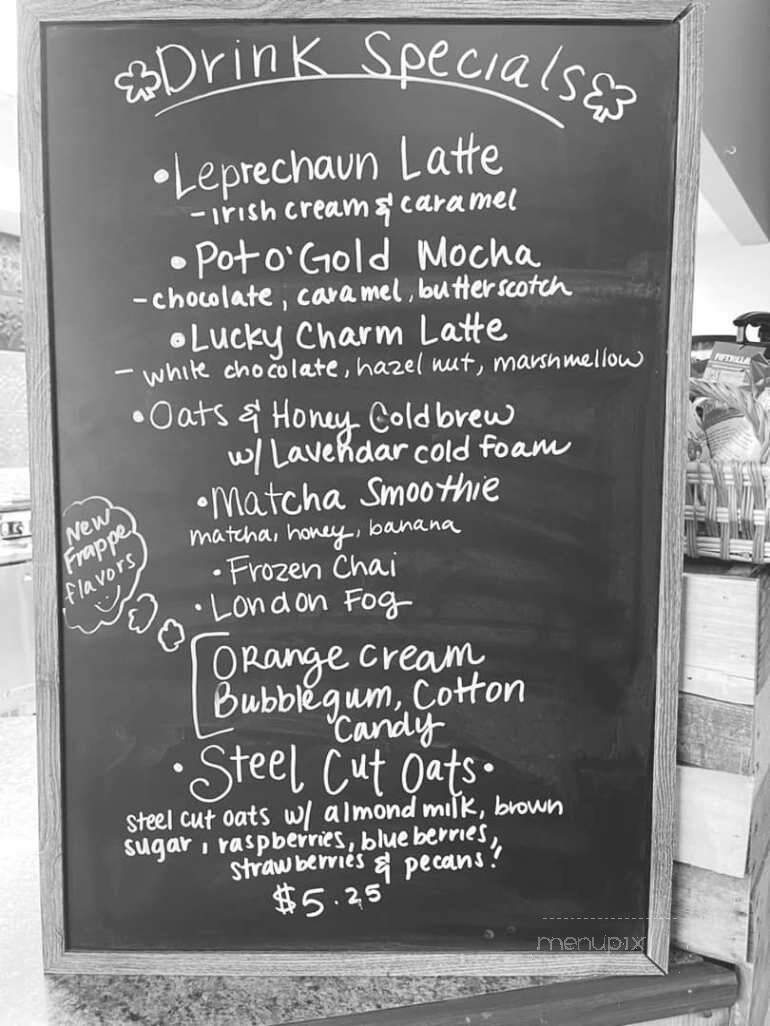 Drink Specials
•Leprechaun Latte
-irish cream & caramel
• Pot o' Gold Mocha
-chocolate, caramel, butterscotch
•Lucky Charm Latte
- white chocolate, hazel nut, marshmellow
•Oats & Honey Coldbrew
w/ Lavendar cold foam
•Matcha Smoothie
matcha, honey, banana
• Frozen Chai
• London Fog
New
Frappe
flavors
Orange cream
Bubblegum, Cotton
Candy
• Steel Cut Oats •
steel cut oats w/ almond milk, brown
sugar, raspberries, blueberries,
strawberries & pecans!
$5.25
menupix